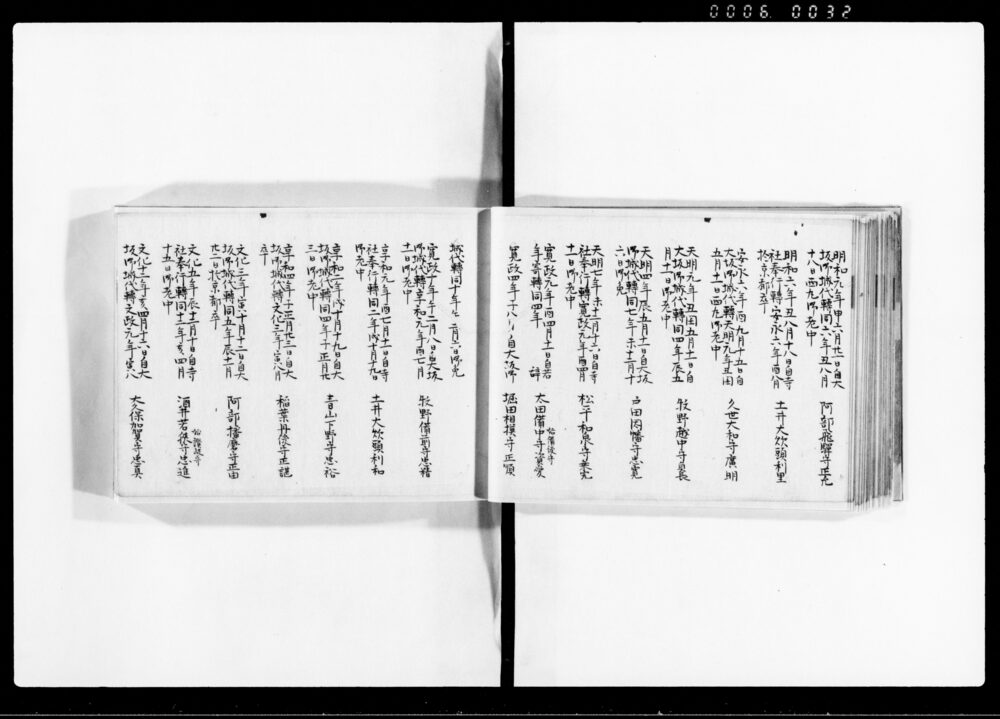 0006 0032
明和元年甲申六月廿一日自大
坂御城代轉同六年丑八月
十八日西丸御老中
阿部飛騨守正允
明和六年丑八月十八日自寺
社奉行轉安永六年酉八月
於京都卒
土井大炊頭利里
安永六年酉九月十五日自
大坂御城代轉天明元年丑閏
五月十一日西丸御老中
久世大和守廣明
天明元年丑閏五月十一日自
大坂御城代轉同四年辰五
月十一日御老中
牧野越中守貞長
天明四年辰五月十一日自大坂
御城代轉同七年未十二月十
六日御免
戸田因幡守忠寛
天明七年未十二月十六日自寺
社奉行轉寛政元年酉四月
十一日御老中
松平和泉守乗完
寛政元年酉四月十一日自若
年寄轉同四年 辞
太田備中守資愛
始備後守
寛政四年 自大坂御
堀田相模守正順
城代轉同十年 月六日御免
寛政十年十二月八日自大坂
御城代轉享和元年酉七月
十一日御老中
牧野備前守忠精
享和元年酉七月十一日自寺
社奉行轉同二年戌十月十九日
土井大炊頭利和
享和二年戌十月十九日自大
坂御城代轉同四年子正月廿
三日御老中
青山下野守忠裕
享和四年子正月廿三日自大
坂御城代轉文化三年寅八月
卒
稲葉丹後守正諶
文化三年寅十月十二日自大
坂御城代轉同五年辰十一月
廿二日於京都卒
阿部播磨守正由
文化五年辰十二月十日自寺
社奉行轉同十二年亥四月
十五日御老中
酒井若狭守忠進
始讃岐守
文化十二年亥四月十六日自大
坂御城代轉文政元年寅八
大久保加賀守忠真